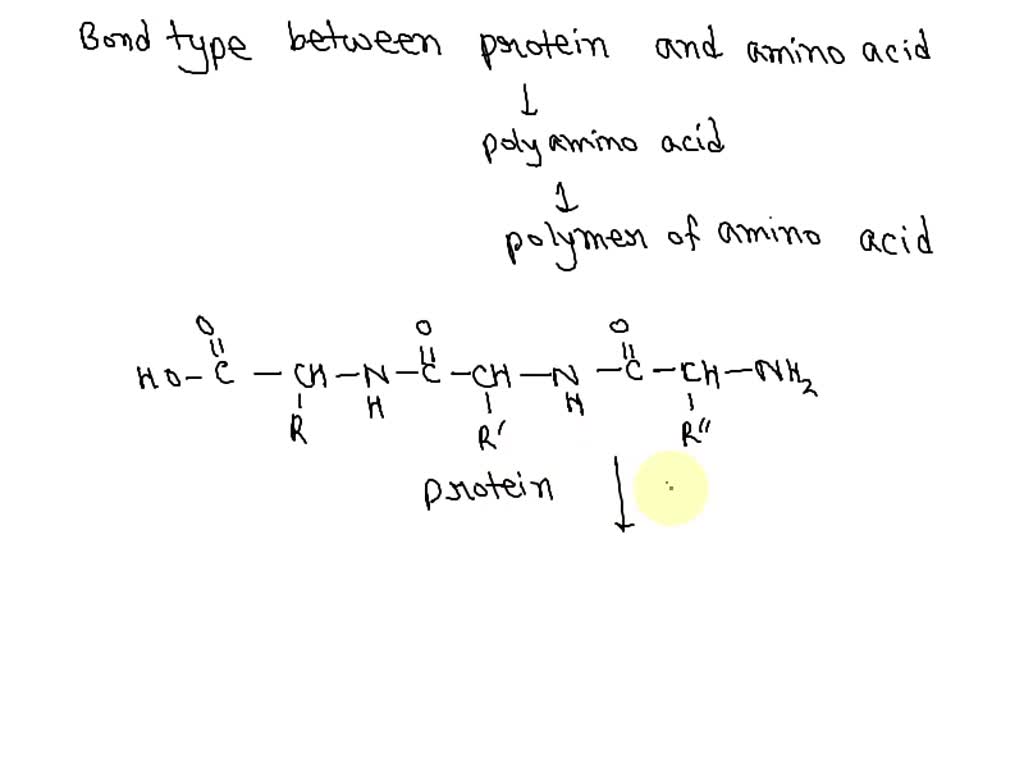 Bond type between protein and amino acid
↓
polyamino acid
↓
polymer of amino acid
O O O
|| || ||
HO-C-CH-N-C-CH-N-C-CH-NH₂
| H | H |
R R' R"
protein ↓